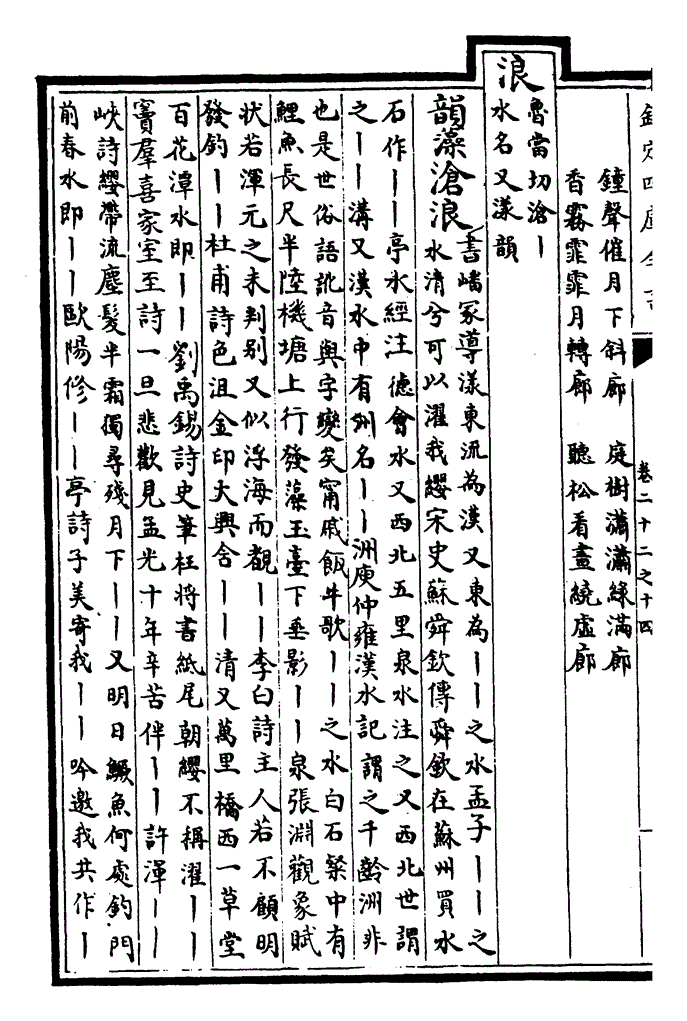 欽定四庫全書 卷二十二之十四
鐘聲催月下斜廊 庭樹瀟瀟綠滿廊
香霧霏霏月轉廊 聽松看畫繞虛廊
浪
魯當切滄〡
水名又漾韻
韻藻滄浪
書嶓冢導漾東流為漢又東為〡〡之水孟子〡〡之
水清兮可以濯我纓宋史蘇舜欽傳舜欽在蘇州買水
石作〡〡亭水經注德會水又西北五里泉水注之又西北世謂
之〡〡溝又漢水中有州名〡〡洲庾仲雍漢水記謂之千齡洲非
也是世俗語訛音與字變矣甯戚飯牛歌〡〡之水白石粲中有
鯉魚長尺半陸機塘上行發藻玉臺下垂影〡〡泉張淵觀象賦
狀若渾元之未判别又似浮海而觀〡〡李白詩主人若不顧明
發釣〡〡杜甫詩色沮金印大興含〡〡清又萬里橋西一草堂
百花潭水即〡〡劉禹錫詩史筆枉將書紙尾朝纓不稱濯〡〡
竇羣喜家室至詩一旦悲歡見孟光十年辛苦伴〡〡許渾〡〡
峽詩纓帶流塵髮半霜獨尋殘月下〡〡又明日鱖魚何處釣門
前春水即〡〡歐陽修〡〡亭詩子美寄我〡〡吟邀我共作〡